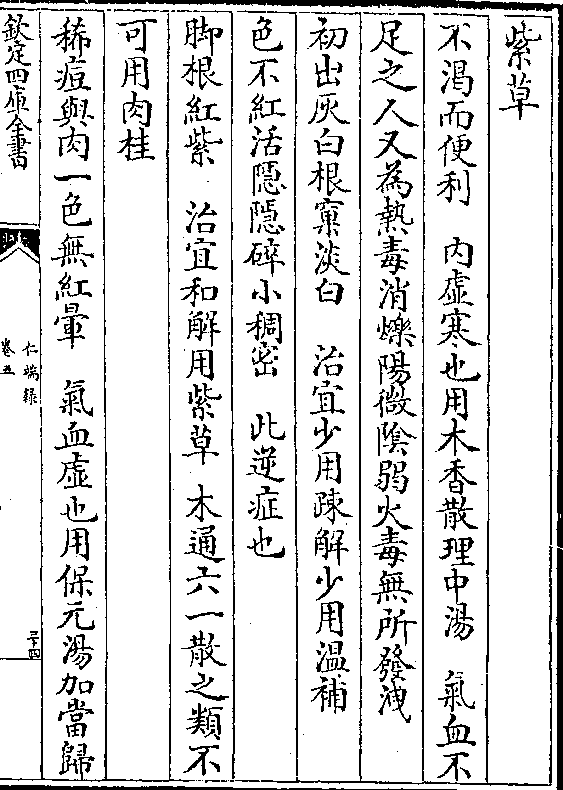 紫草
不渴而便利　內虛寒也用木香散理中湯　氣血不
足之人又為熱毒消爍陽微陰弱火毒無所發洩
初出灰白根窠淡白　治宜少用疎解少用温補
色不紅活隱隱碎小稠密　此逆症也
脚根紅紫　治宜和解用紫草　木通六一散之類不
可用肉桂
稀痘與肉一色無紅暈　氣血虛也用保元湯加當歸
欽定四庫全書
仁端録
卷五
二十四